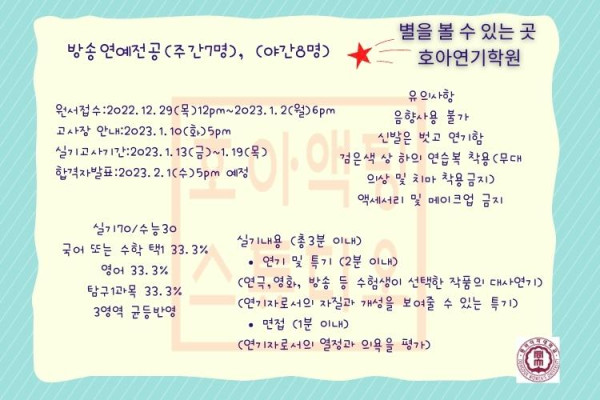 별을 볼 수 있는 곳
호아연기학원
방송연예전공(주간7명), (야간8명)
원서접수:2022.12.29(목)12pm~2023.1.2(월)6pm
고사장 안내:2023.1.10(화)5pm
실기고사기간:2023.1.13(금)~1.19(목)
합격자발표:2023.2.1(수)5pm 예정
유의사항
음향사용 불가
신발은 벗고 연기함
검은색 상 하의 연습복 착용(무대
의상 및 치마 착용금지)
액세서리 및 메이크업 금지
실기70/수능30
국어 또는 수학 택1 33.3%
영어 33.3%
탐구1과목 33.3%
3영역 균등반영
실기내용 (총3분 이내)
• 연기 및 특기 (2분 이내)
(연극,영화, 방송 등 수험생이 선택한 작품의 대사연기)
(연기자로서의 자질과 개성을 보여줄 수 있는 특기)
• 면접 (1분 이내)
(연기자로서의 열정과 의욕을 평가)
호아액팅
스튜디오